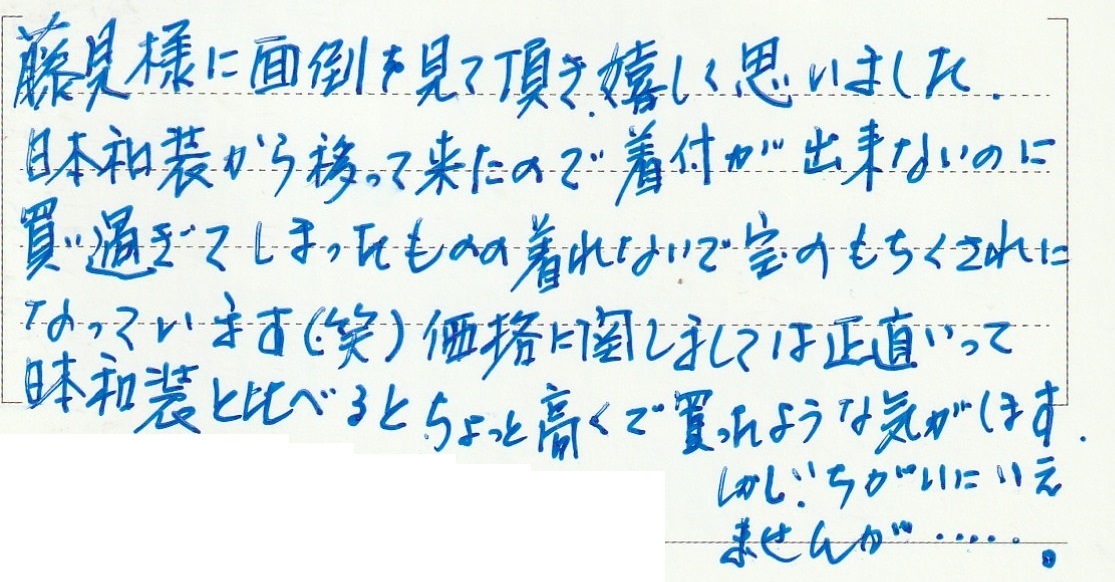 藤見様に面倒を見て頂き、嬉しく思いました.
日本和装から移って来たので着付が出来ないのに
買い過ぎてしまったものの着れないで宝のもちくされに
なっています(笑)価格に関しましては正直いって
日本和装と比べるとちょっと高くで買ったような気がします.
しかし、いちがいにいえ
ませんが・・・・・。